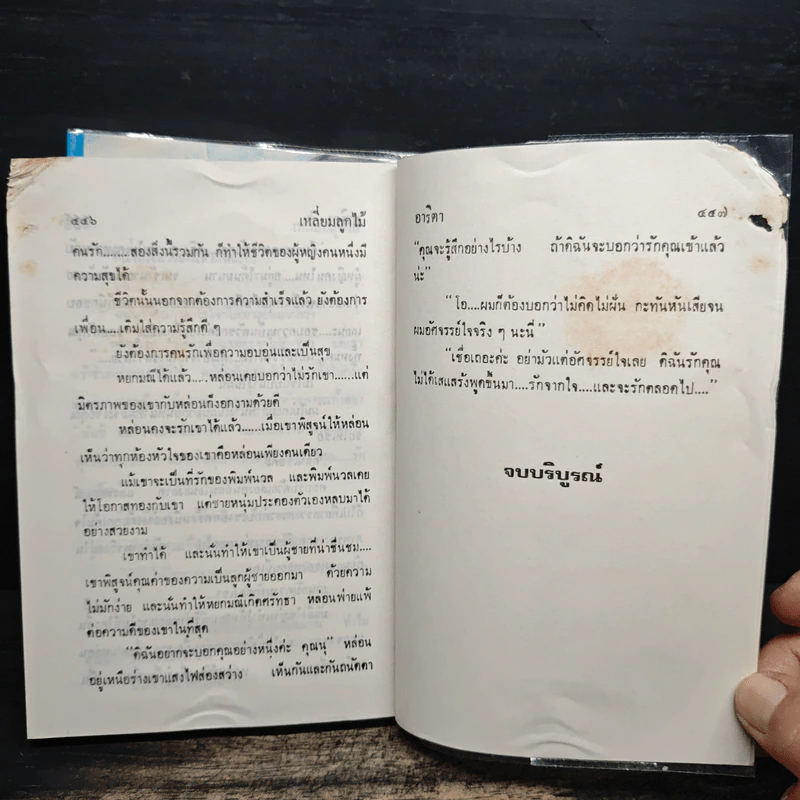 ๔๕๖ เหลี่ยมลูกไม้
คนรัก........สองสิ่งนี้รวมกัน ก็ทำให้ชีวิตของผู้หญิงคนหนึ่งมี
ความสุขได้
ชีวิตนั้นนอกจากต้องการความสำเร็จแล้ว ยังต้องการ
เพื่อน....เติมใส่ความรู้สึกดี ๆ
ยังต้องการคนรักเพื่อความอบอุ่นและเป็นสุข
หยกมณีได้แล้ว.....หล่อนเคยบอกว่าไม่รักเขา.....แต่
มิตรภาพของเขากับหล่อนก็งอกงามด้วยดี
หล่อนคงจะรักเขาได้แล้ว......เมื่อเขาพิสูจน์ให้หล่อน
เห็นว่าทุกห้องหัวใจของเขาคือหล่อนเพียงคนเดียว
แม้เขาจะเป็นที่รักของพิมพ์นวล และพิมพ์นวลเคย
ให้โอกาสทองกับเขา แต่ชายหนุ่มประคองตัวเองหลบมาได้
อย่างสวยงาม
เขาทำได้ และนั่นทำให้เขาเป็นผู้ชายที่น่าชื่นชม....
เขาพิสูจน์คุณค่าของความเป็นลูกผู้ชายออกมา ด้วยความ
ไม่มักง่าย และนั่นทำให้หยกมณีเกิดศรัทธา หล่อนพ่ายแพ้
ต่อความดีของเขาในที่สุด
"ดิฉันอยากจะบอกคุณอย่างหนึ่งค่ะ คุณนุ" หล่อน
อยู่เหนือร่างเขาแสงไฟส่องสว่าง เห็นกันและกันถนัดตา
อาริตา ๔๕๗
"คุณจะรู้สึกอย่างไรบ้าง ถ้าดิฉันจะบอกว่ารักคุณเข้าแล้ว
น่ะ"
"โอ....ผมก็ต้องบอกว่าไม่คิดไม่ฝัน กะทันหันเสียจน
ผมอัศจรรย์ใจจริง ๆ นะนี่"
"เชื่อเถอะค่ะ อย่ามัวแต่อัศจรรย์ใจเลย ดิฉันรักคุณ
ไม่ได้เสแสร้งพูดขึ้นมา....รักจากใจ....และจะรักตลอดไป...."
จบบริบูรณ์